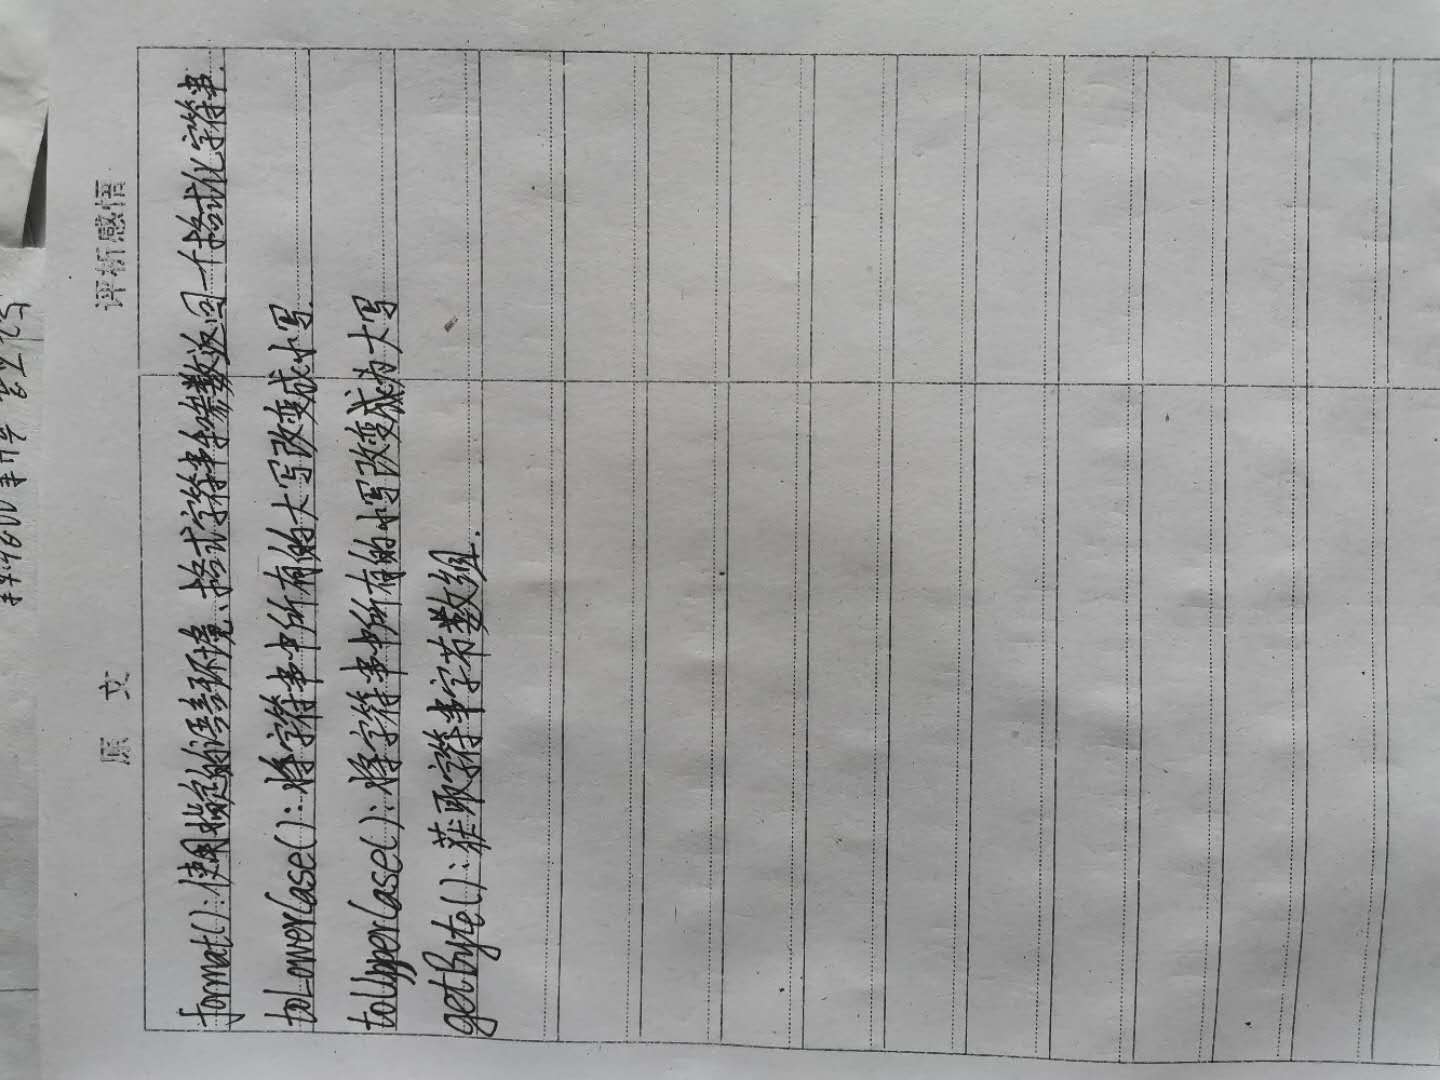 原 文 评析感悟
format():使用指定的语言环境、格式字符串和参数返回一个格式化字符串.
toLowerCase():将字符串中所有的大写改变成小写.
toUpperCase():将字符串中所有的小写改变成为大写
getByte():获取字符串字节数组.